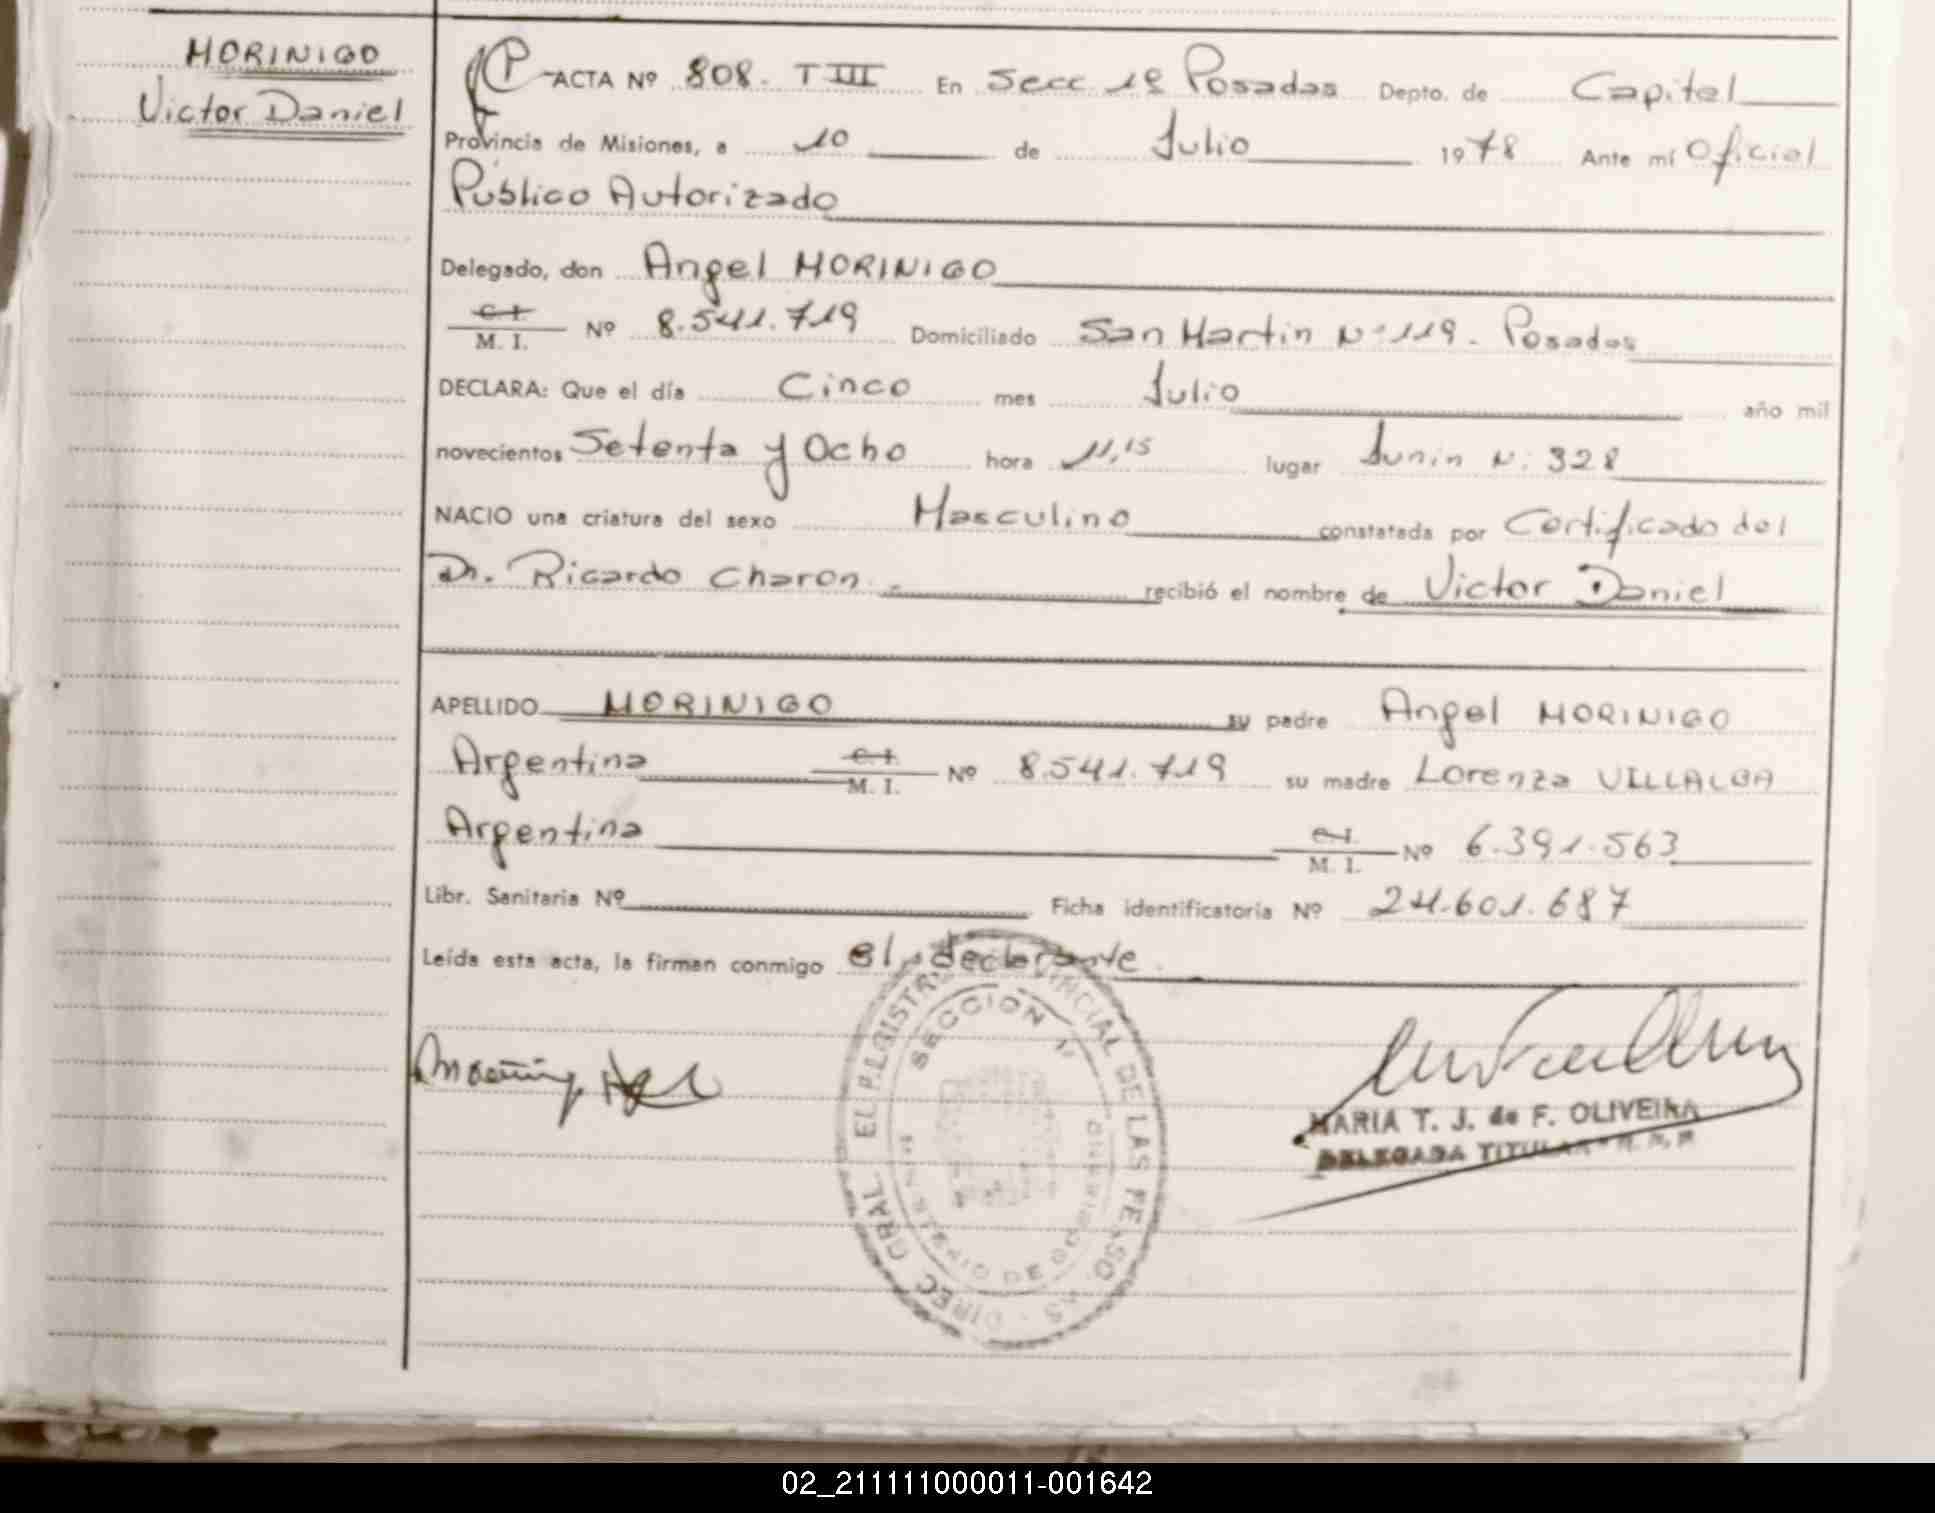 MORINIGO
Victor Daniel
ACTA Nº 808. T III En Secc 1ª Posadas Depto. de Capital
Provincia de Misiones, a 10 de Julio 1978 Ante mí Oficial
Público Autorizado
Delegado, don Angel MORINIGO
C. I.
M. I. Nº 8.541.719 Domiciliado San Martin Nº 119. Posadas
DECLARA: Que el día Cinco mes Julio año mil
novecientos Setenta y Ocho hora 11,15 lugar Junin N. 328
NACIO una criatura del sexo Masculino constatada por Certificado del
Dr. Ricardo Charon. recibió el nombre de Victor Daniel
APELLIDO MORINIGO su padre Angel MORINIGO
Argentina C. I. M. I. Nº 8.541.719 su madre Lorenza VILLALBA
Argentina C. I. M. I. Nº 6.391.563
Libr. Sanitaria Nº Ficha identificatoria Nº 24.601.687
Leída esta acta, la firman conmigo el declarante.
DIREC GRAL. DEL R. PROVINCIAL DE LAS PERSONAS
SECCION 1ª
MINISTERIO DE GOBIERNO
MARIA T. J. de F. OLIVEIRA
DELEGADA TITULAR
02_211111000011-001642